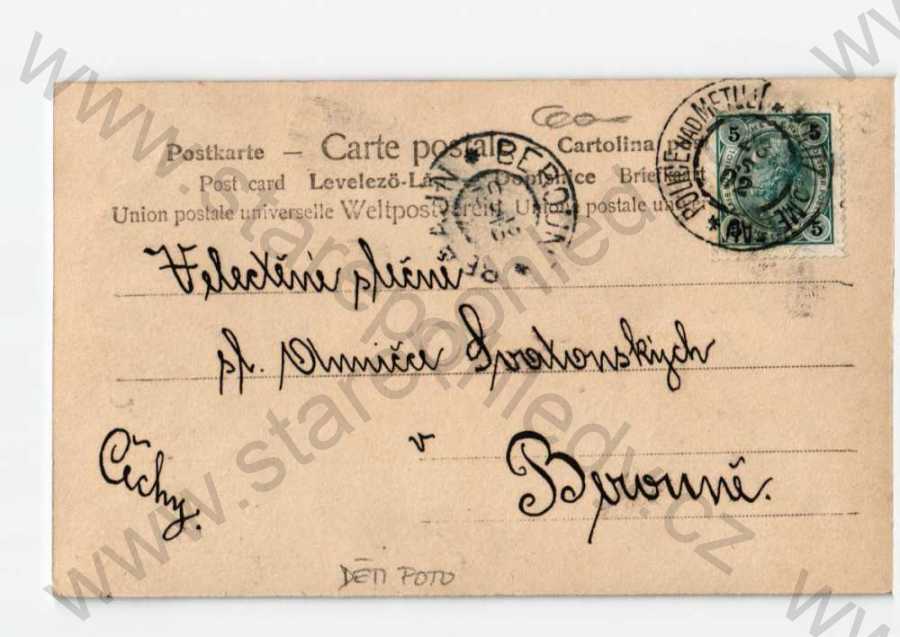 Postkarte – Carte postale Cartolina
Post card Levelező-La Dopisnice Briefkart
Union postale universelle Weltpostverein Union postale un
BEROUN * BERAUN *
POLICE NAD METUJÍ
5 5
5
Velectěné slečně
sl. Anničce Svatonských
v
Berouně.
Čechy.
DĚTI FOTO
www.staropohledy.cz